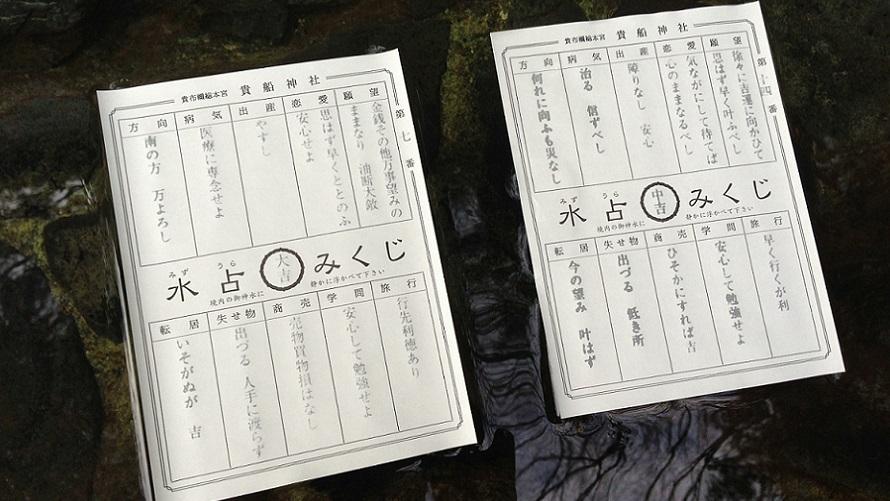 貴布禰総本宮 貴船神社
第七番
願望
金銭その他万事望みの
ままなり 油断大敵
恋愛
思はず早くととのふ
安心せよ
出産
やすし
病気
医療に専念せよ
方向
南の方 万よろし
みず うら
水占 大吉 みくじ
境内の御神水に 静かに浮かべて下さい
旅行
行先利徳あり
学問
安心して勉強せよ
商売
売物買物損はなし
失せ物
出づる 人手に渡らず
転居
いそがぬが 吉
貴布禰総本宮 貴船神社
第十四番
願望
徐々に吉運に向かひて
思はず早く叶ふべし
恋愛
気ながにして待てば
心のままなるべし
出産
障りなし 安心
病気
治る 信ずべし
方向
何れに向ふも災なし
みず うら
水占 中吉 みくじ
境内の御神水に 静かに浮かべて下さい
旅行
早く行くが利
学問
安心して勉強せよ
商売
ひそかにすれば吉
失せ物
出づる 低き所
転居
今の望み 叶はず